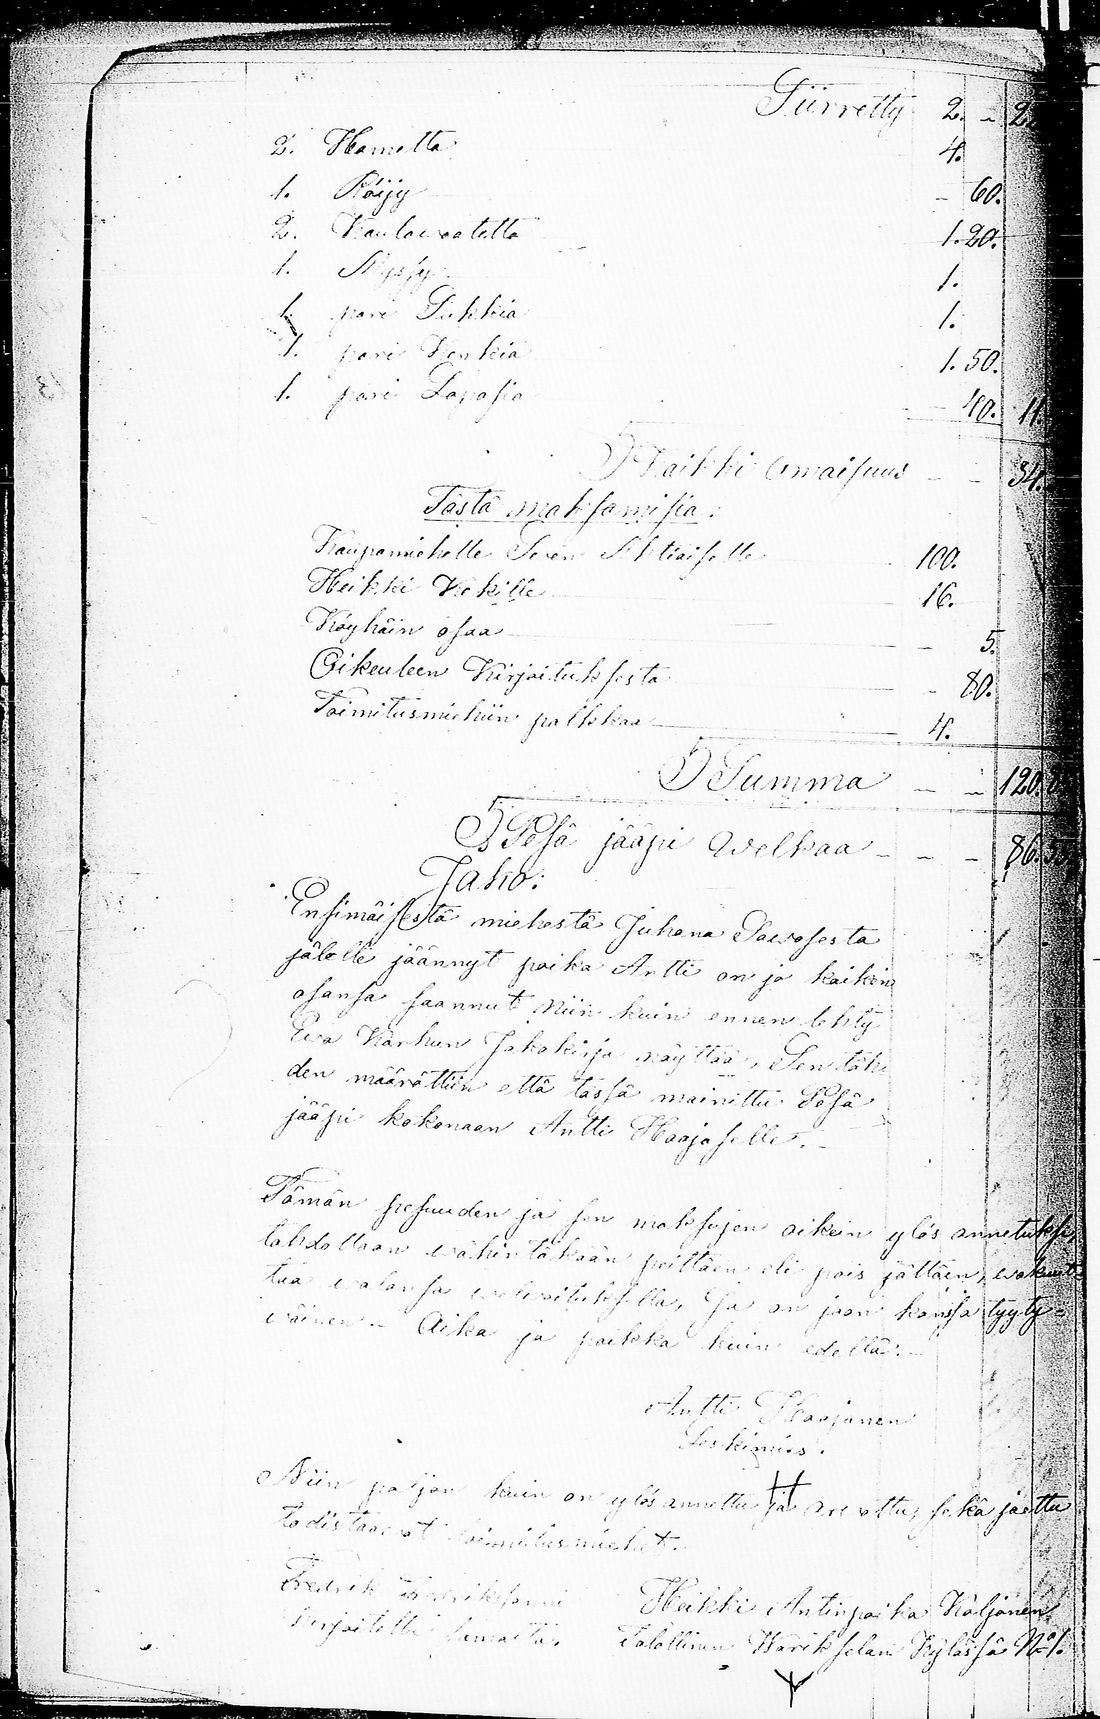 Siirretty 2. - 2
2. Hametta 4.
1. Röijy - 60.
2. Kaulavaatetta 1. 20.
1. Myssy 1.
1. pari Sukkia 1.
1. pari Kenkiä 1. 50.
1. pari Lapasia - 40. 11.
Kaikki Omaisuus - - 34.
Tästä maksamisia:
Kaupamiehelle 100.
Heikki Kekille 16.
Köyhäin osaa - 5.
Oikeuteen Kirjoituksesta - 80.
Toimitusmiehiin palkkaa 4.
Summa - - 120.
Pesä jääpi Welkaa - - - 86.55
Jako:
Ensimäisestä miehestä Juhana Paavosesta
jälelle jäännyt poika Antti on jo kaiken
osansa saannut niin kuin ennen tehty
Eva Karhun Jakokirja näyttää, Sentäh
den määrättiin että tässä mainittu Pesä
jääpi kokonaan Antti Haajaselle. -
Tämän pesuuden ja sen maksujen oikein ylös annetuksi,
tahdottaan vähintäkään peittäen eli pois jättäen, vakuut
taa valansa velvoituksella, Ja on jaon kanssa tyyty=
väinen - Aika ja paikka kuin edellä. -
Antti Haajanen
Leskimies.
Niin paljon kuin on ylösannettu ja arvattu, sekä jaettu
todistaavat toimitusmiehet.
Fredrik Fredriksonni Heikki Antinpoika Käljänen
Kirjoitetti samalta. Talollinen Kylässä No 1.